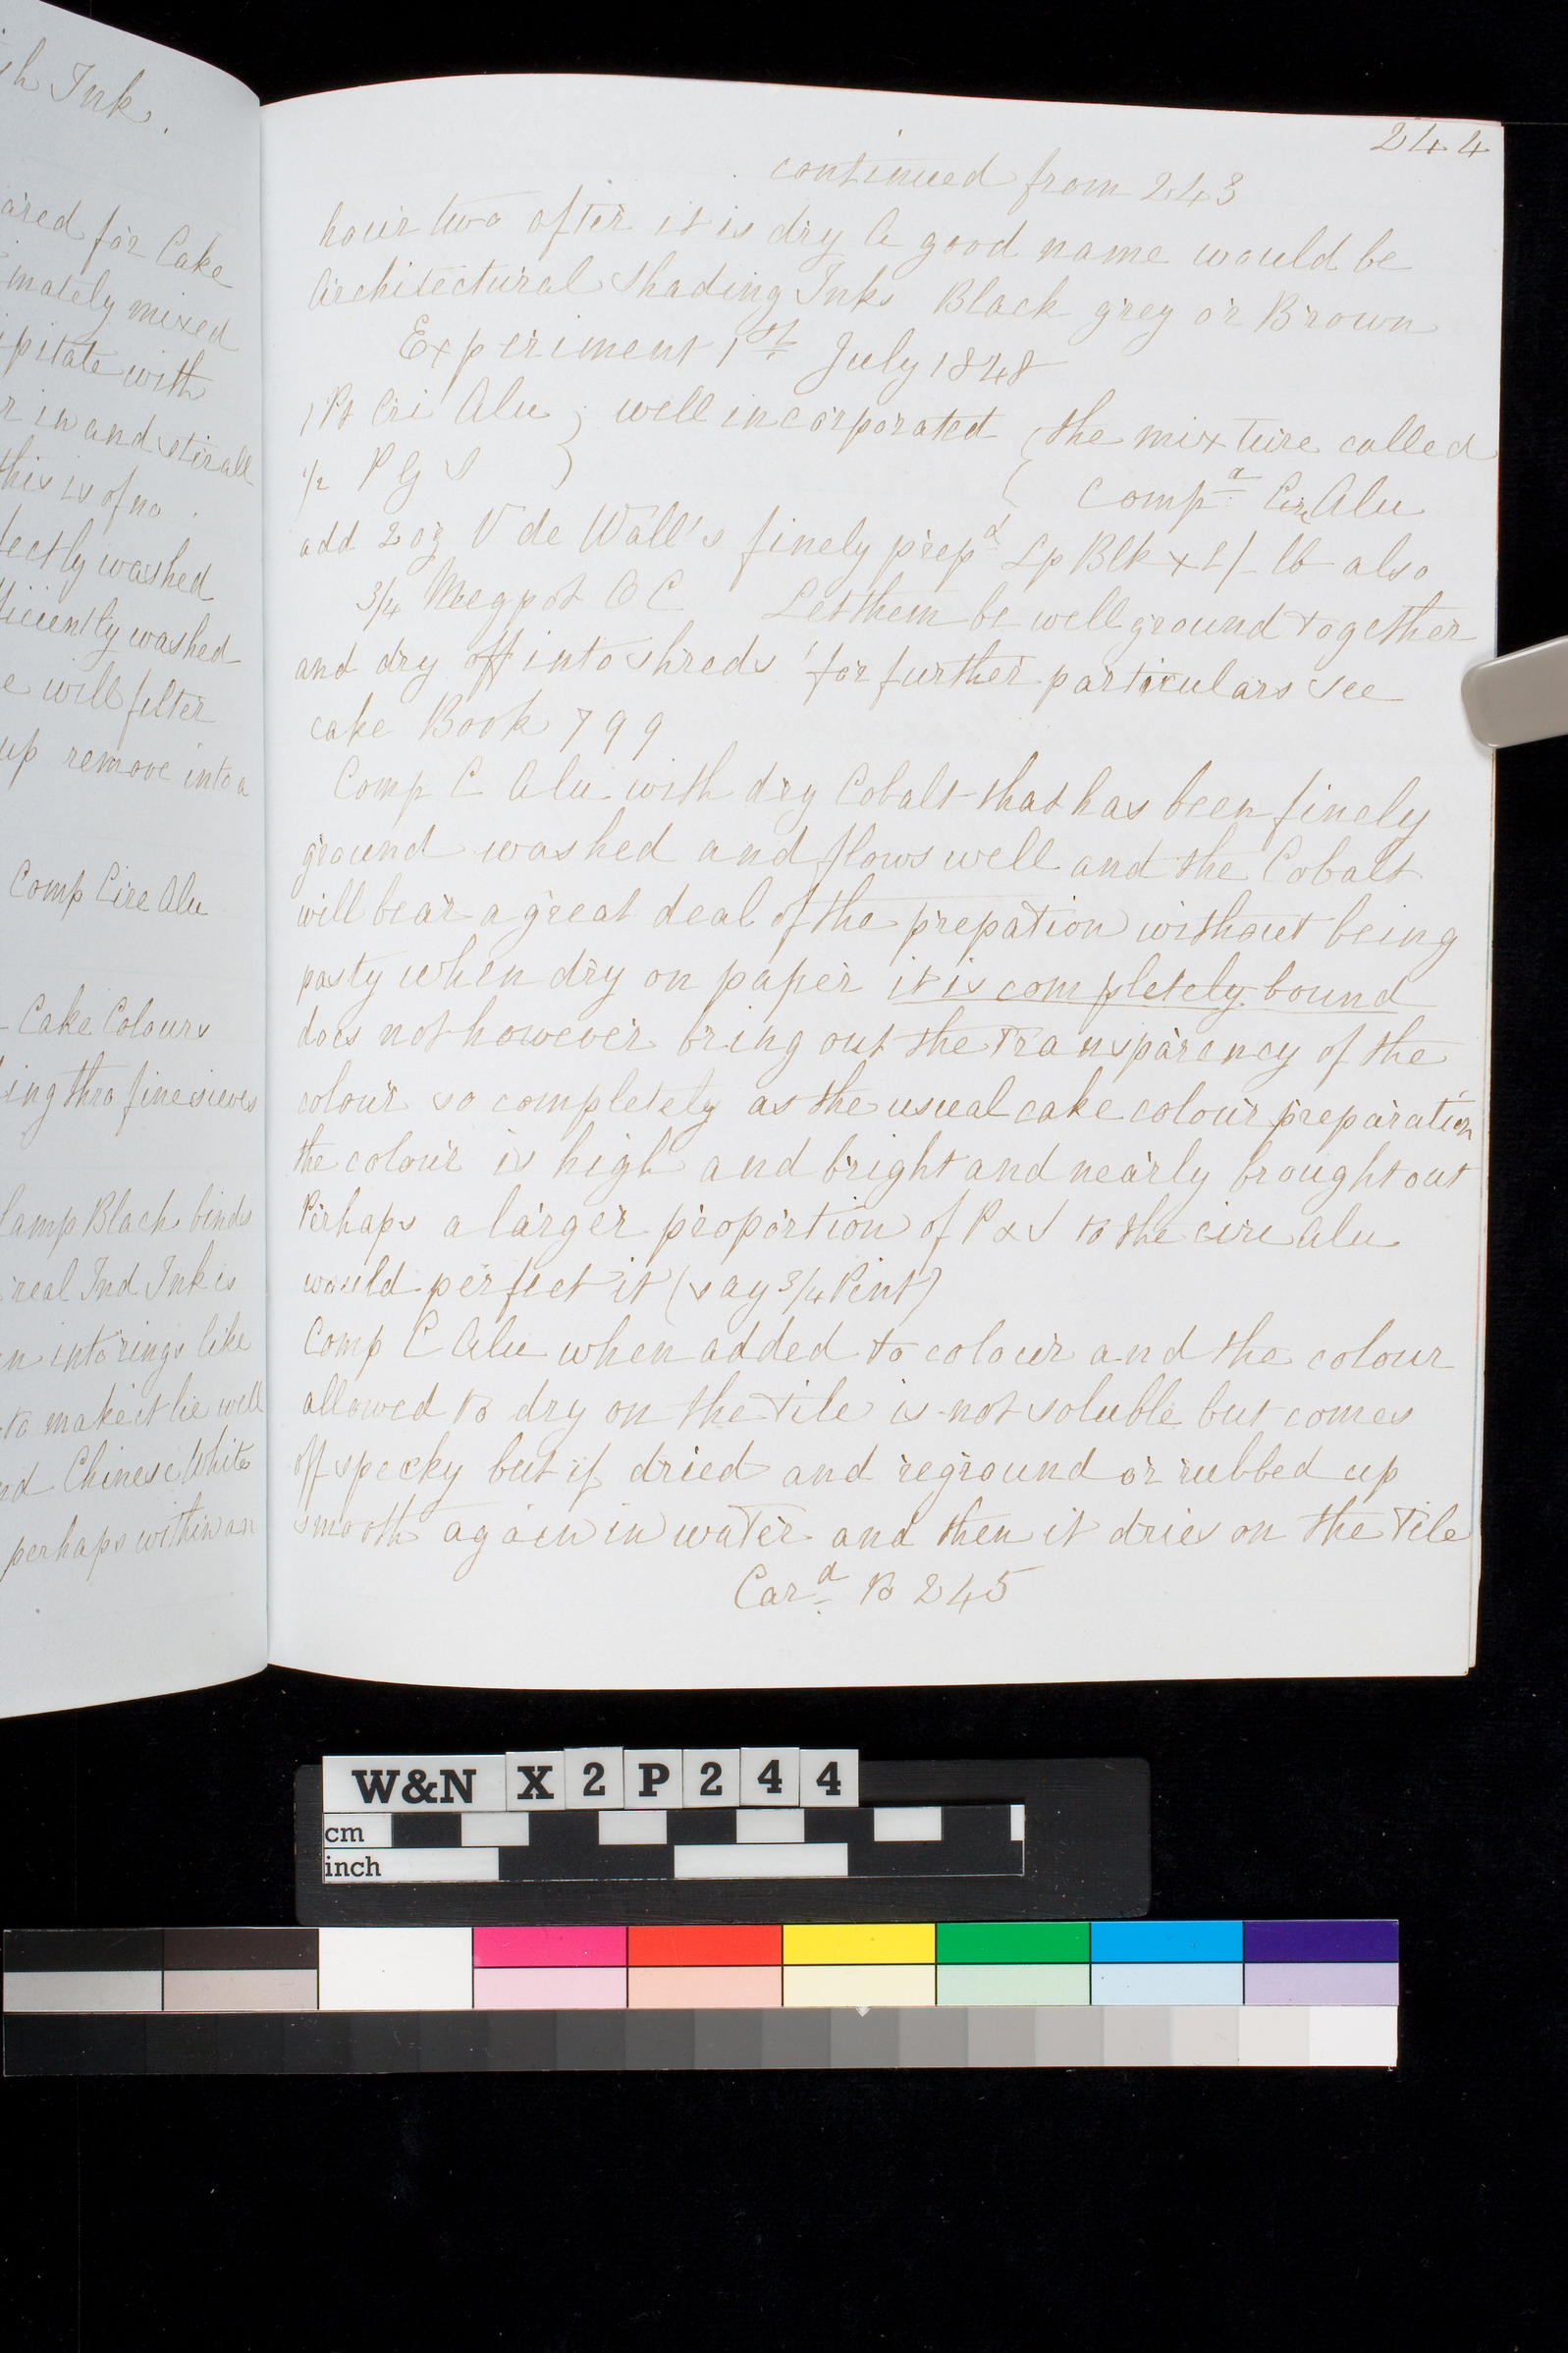 sh Ink.
ared for Cake
imately mixed
ipitate with
r in and stir all
this is of no
fectly washed
ficiently washed
e will filter
up remove into a
Comp Cire Alu
Cake Colours
ing thro fine sieves
Lamp Black binds
real Ind Ink is
en into rings like
to make it lie well
nd Chinese White
perhaps within an
244
continued from 243
hour two after it is dry A good name would be
Architectural Shading Inks Black grey or Brown
Experiment 1st July 1848
1 Pt Cri Alu } well incorporated { the mixture called
1/2 P G S } { Compd Cire Alu
add 2 oz V de Wall's finely prepd Lp Blk x L/- lb also
3/4 Megpot O C Let them be well ground together
and dry off into shreds for further particulars see
cake Book 799
Comp C Alu with dry Cobalt that has been finely
ground washed and flows well and the Cobalt
will bear a great deal of the prepation without being
pasty when dry on paper it is completely bound
does not however bring out the Transparency of the
colour so completely as the usual cake colour preparation
the colour is high and bright and nearly brought out
Perhaps a larger proportion of P & S to the cire Alu
would perfect it (say 3/4 Pint)
Comp C Alu when added to colour and the colour
allowed to dry on the Tile is not soluble but comes
off specky but if dried and reground or rubbed up
smooth again in water and then it dries on the Tile
Card to 245
W&N X 2 P 2 4 4
cm
inch